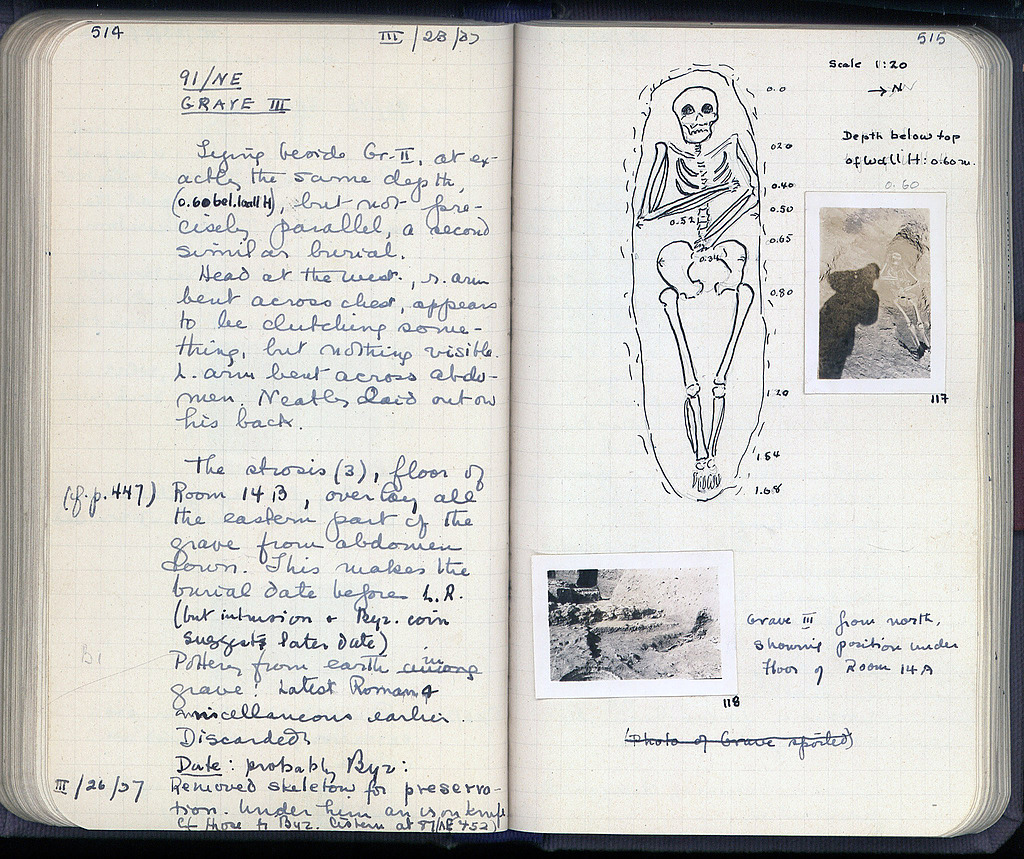 514
III / 23 / 37
91/NE
GRAVE III
Lying beside Gr-II, at ex-
actly the same depth,
(0.60 bel. wall H), but not pre-
cisely parallel, a second
similar burial.
Head at the west, r. arm
bent across chest, appears
to be clutching some-
thing, but nothing visible.
L. arm bent across abdo-
men. Neatly laid out on
his back.
The strosis (3), floor of
(cf. p. 447) Room 14 B, overlay all
the eastern part of the
grave from abdomen
down. This makes the
burial date before L.R.
(but intrusion & Byz. coin
suggests later date)
B1
Pottery from earth in
grave: Latest Roman &
miscellaneous earlier.
Discarded.
Date: probably Byz:
III / 26 / 37 Removed skeleton for preserva-
tion. Under him an iron knife
cf those fr Byz. cistern at 87/NE 452)
515
Scale 1:20
→ N
Depth below top
of wall H: 0.60 m.
0.60
0.0
0.20
0.40
0.50
0.52
0.65
0.34
0.80
1.20
1.54
1.68
117
118
Grave III from north,
showing position under
floor of Room 14A
(Photo of Grave spoiled)